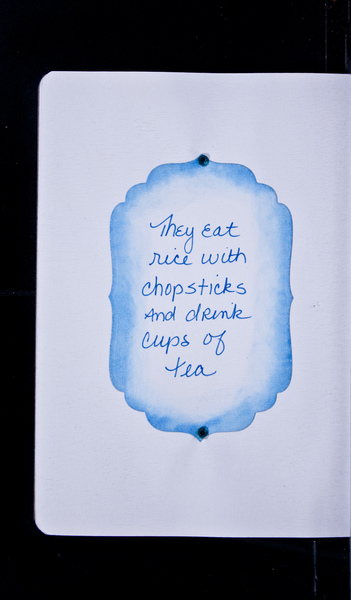 They eat
rice with
chopsticks
And drink
cups of
tea